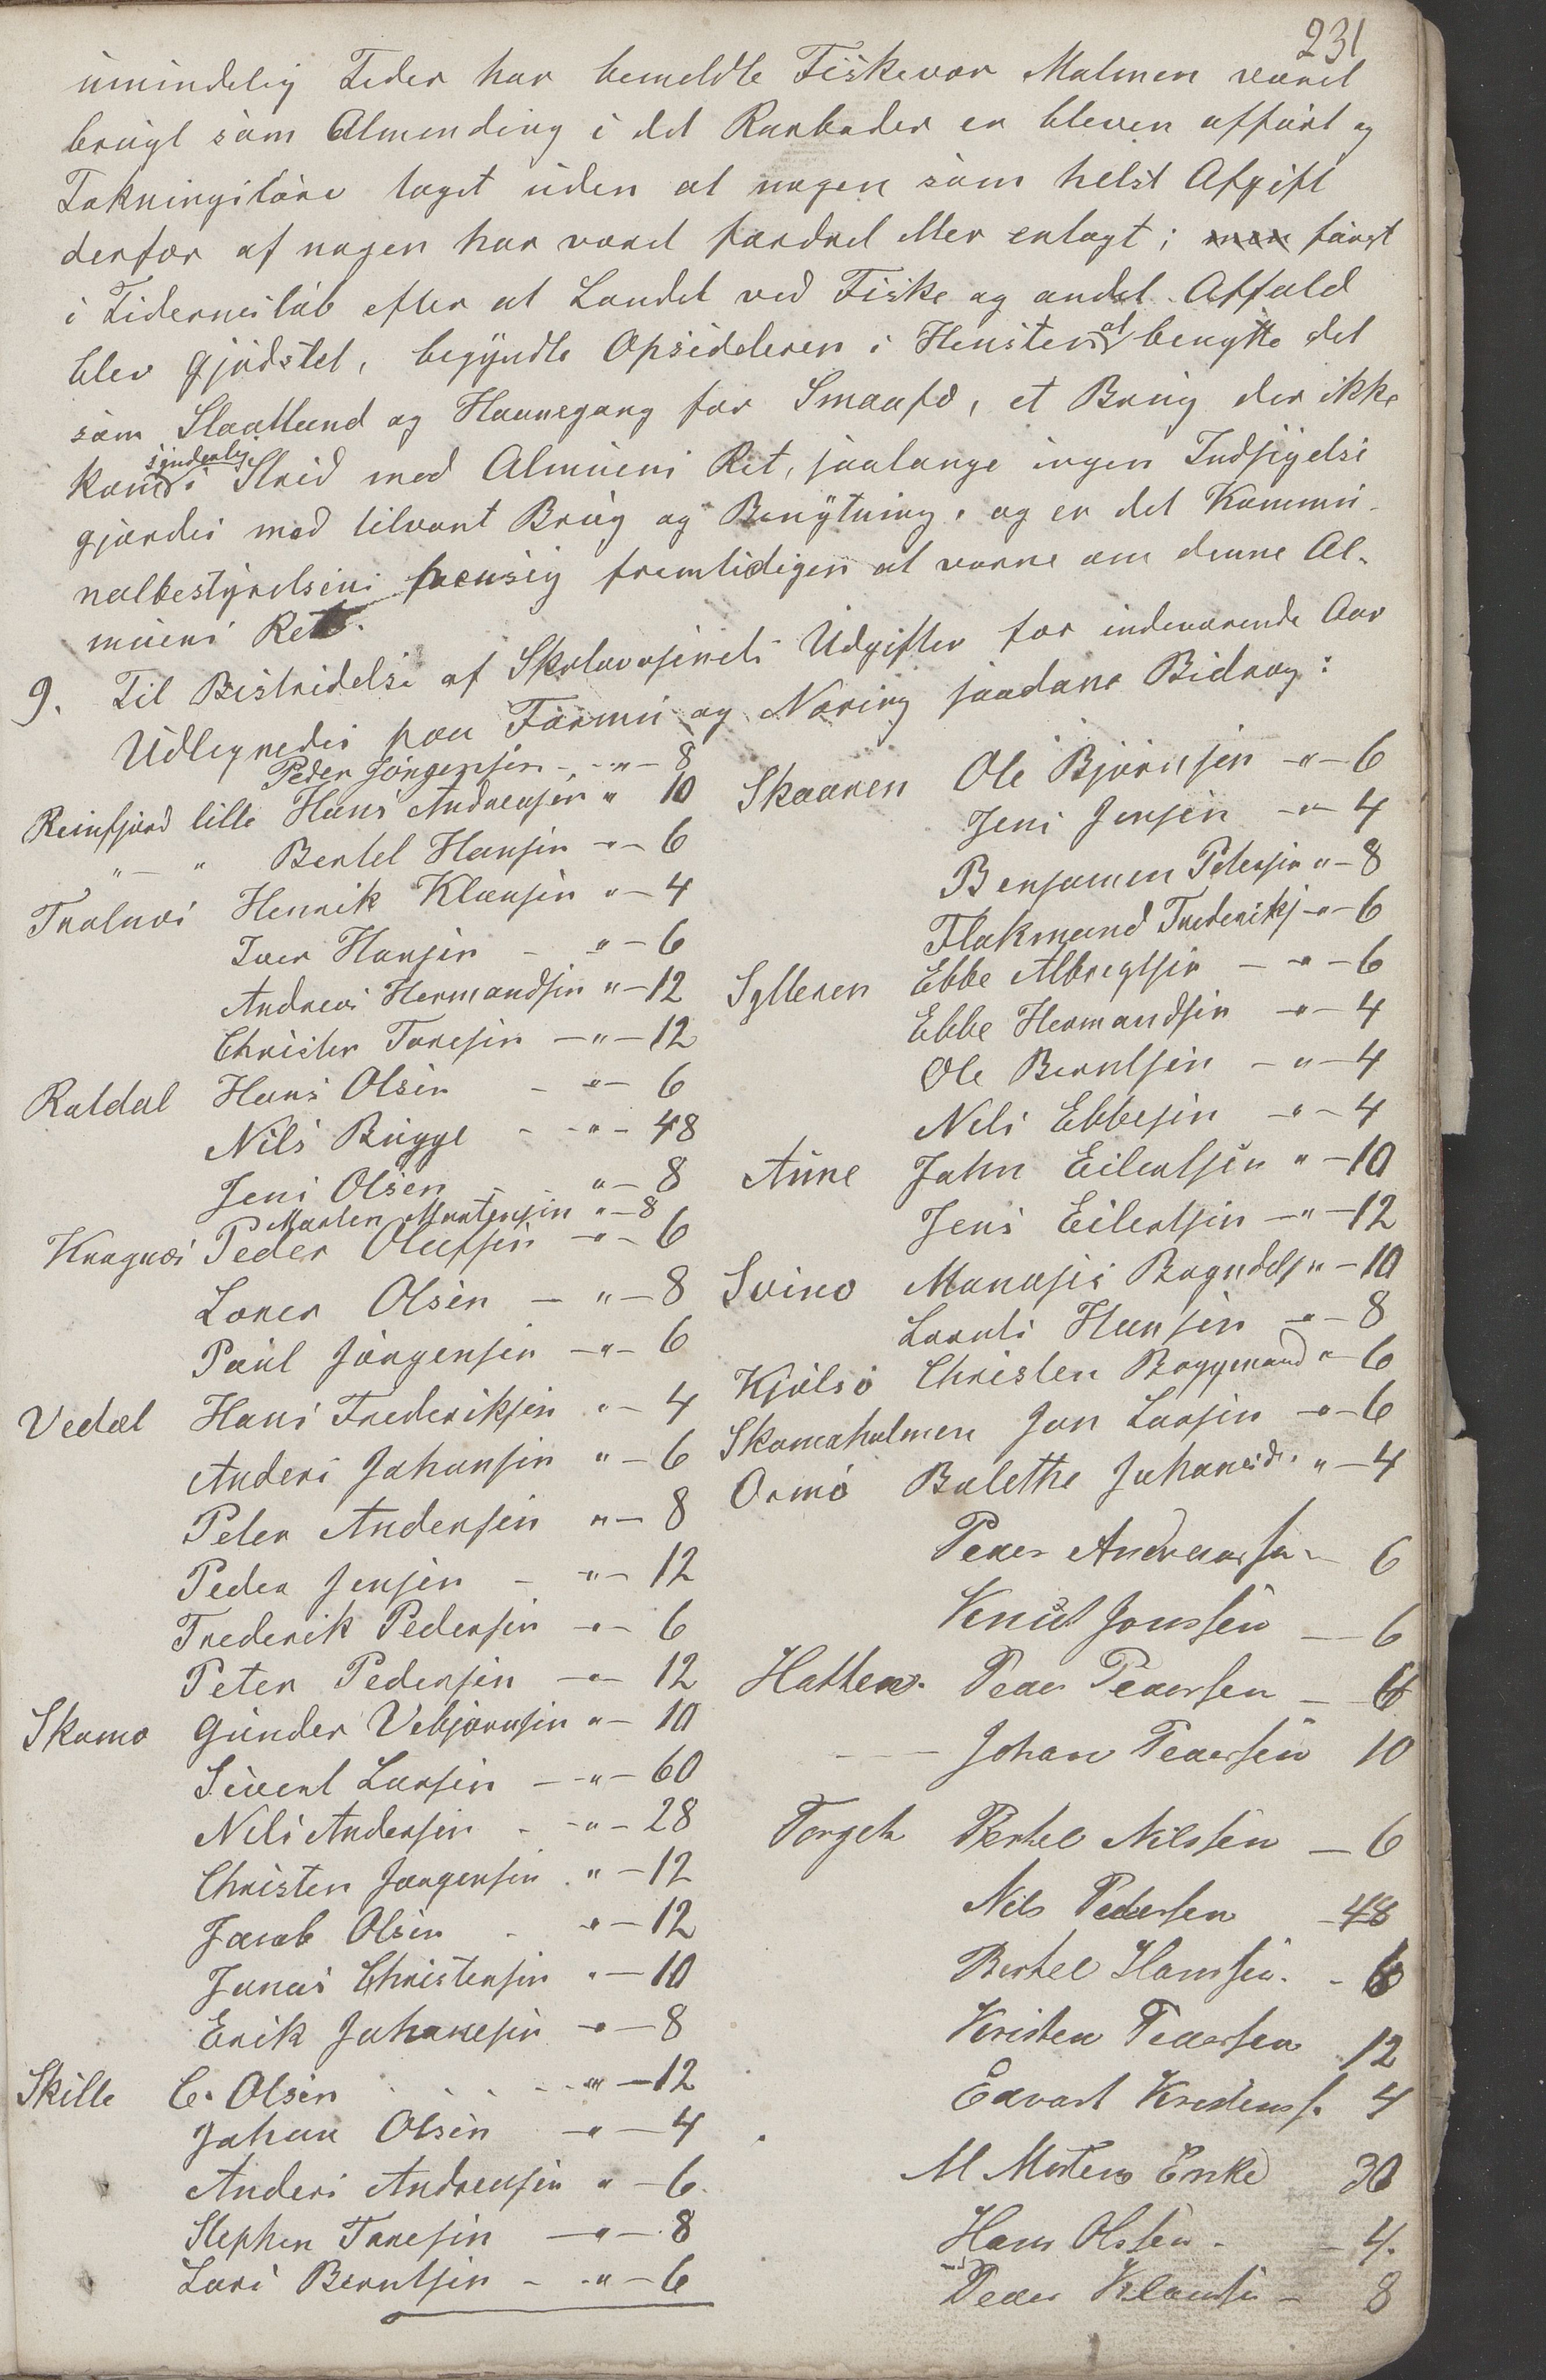 231
umindelig Tider har bemeldte Fiskevær Malmen været
brugt som Almending i det Rorboder er bleven opført og
Tækningstöre taget uden at nogen som helst Afgift
derfor af nogen har været fordret eller erlagt; men först
i Tidernes löb efter at Landet ved Fiske og andet Affald
blev gjödslet, begyndte Opsidderen i Hensten at benytte det
som Slaatland og Havnegang for Smaafæ, et Brug der ikke
kom synderlig i Strid med Almuens Ret, saalange ingen Indsigelse
gjordes mod tilvant Brug og Benytning, og er det Kommu-
nalbestyrelsens fremtidigen at værne om denne Al-
muens Ret.
9. Til Bestridelse af Skolevæsenets Udgifter for indeværende Aar
Udlignedes paa Formue og Næring saadane Bidrag:
Peder Jörgensen - " - 8
Reinfjord lille Hans Andreasen " 10
" — " Bertel Hansen - " - 6
Trælnes Henrik Klausen " - 4
Iver Hansen - " - 6
Andreas Hermandsen " - 12
Christen Toresen - " - 12
Raldal Hans Olsen - " - 6
Nils Bugge - " - 48
Jens Olsen - " - 8
Morten Mortensen " - 8
Kragnæs Peder Olufsen - " - 6
Lorer Olsen - " - 8
Paul Jörgensen - " - 6
Vedal Hans Frederiksen " - 4
Anders Johansen " - 6
Peter Andersen " - 8
Peder Jensen - " - 12
Frederik Pedersen - " - 6
Peter Pedersen - " - 12
Skomo Gunder Vebjörnsen " - 10
Sivert Larsen - " - 60
Nils Andersen - " - 28
Christen Jörgensen " - 12
Jacob Olsen - " - 12
Jonas Christensen " - 10
Erik Johanesen - " - 8
Skille C. Olsen - " - 12
Johan Olsen - " - 4
Anders Andreasen " - 6
Stephen Toresen - " - 8
Lars Berntsen - " - 6
Skaaren Ole Björnsen - " - 6
Jens Jensen - " - 4
Benjamen Petersen " - 8
Flakmand Frederiks - " - 6
Sylteren Ebbe Albregtsen - " - 6
Ebbe Hermandsen - " - 4
Ole Berntsen - " - 4
Nils Ebbesen - " - 4
Aune John Eilertsen " - 10
Jens Eilertsen - " - 12
Svino Manases Bagndels " - 10
Laruts Hansen - " - 8
Kjölsö Christen Boggemand " - 6
Skomoholmen Jon Larsen - " - 6
Ormö Balethe Johansd. " - 4
Peder Andreassen - 6
Knut Jonssen - 6
Hatten Peder Pedersen - 6
— Johan Pedersen 10
Torget Bertel Nilssen - 6
Nils Pedersen - 48
Bertel Hanssen - 6
Kristen Pedersen 12
Edvart Kristenss. 4
M Mortens Enke 30
Hans Olssen - 4
Peder Klausen - 8